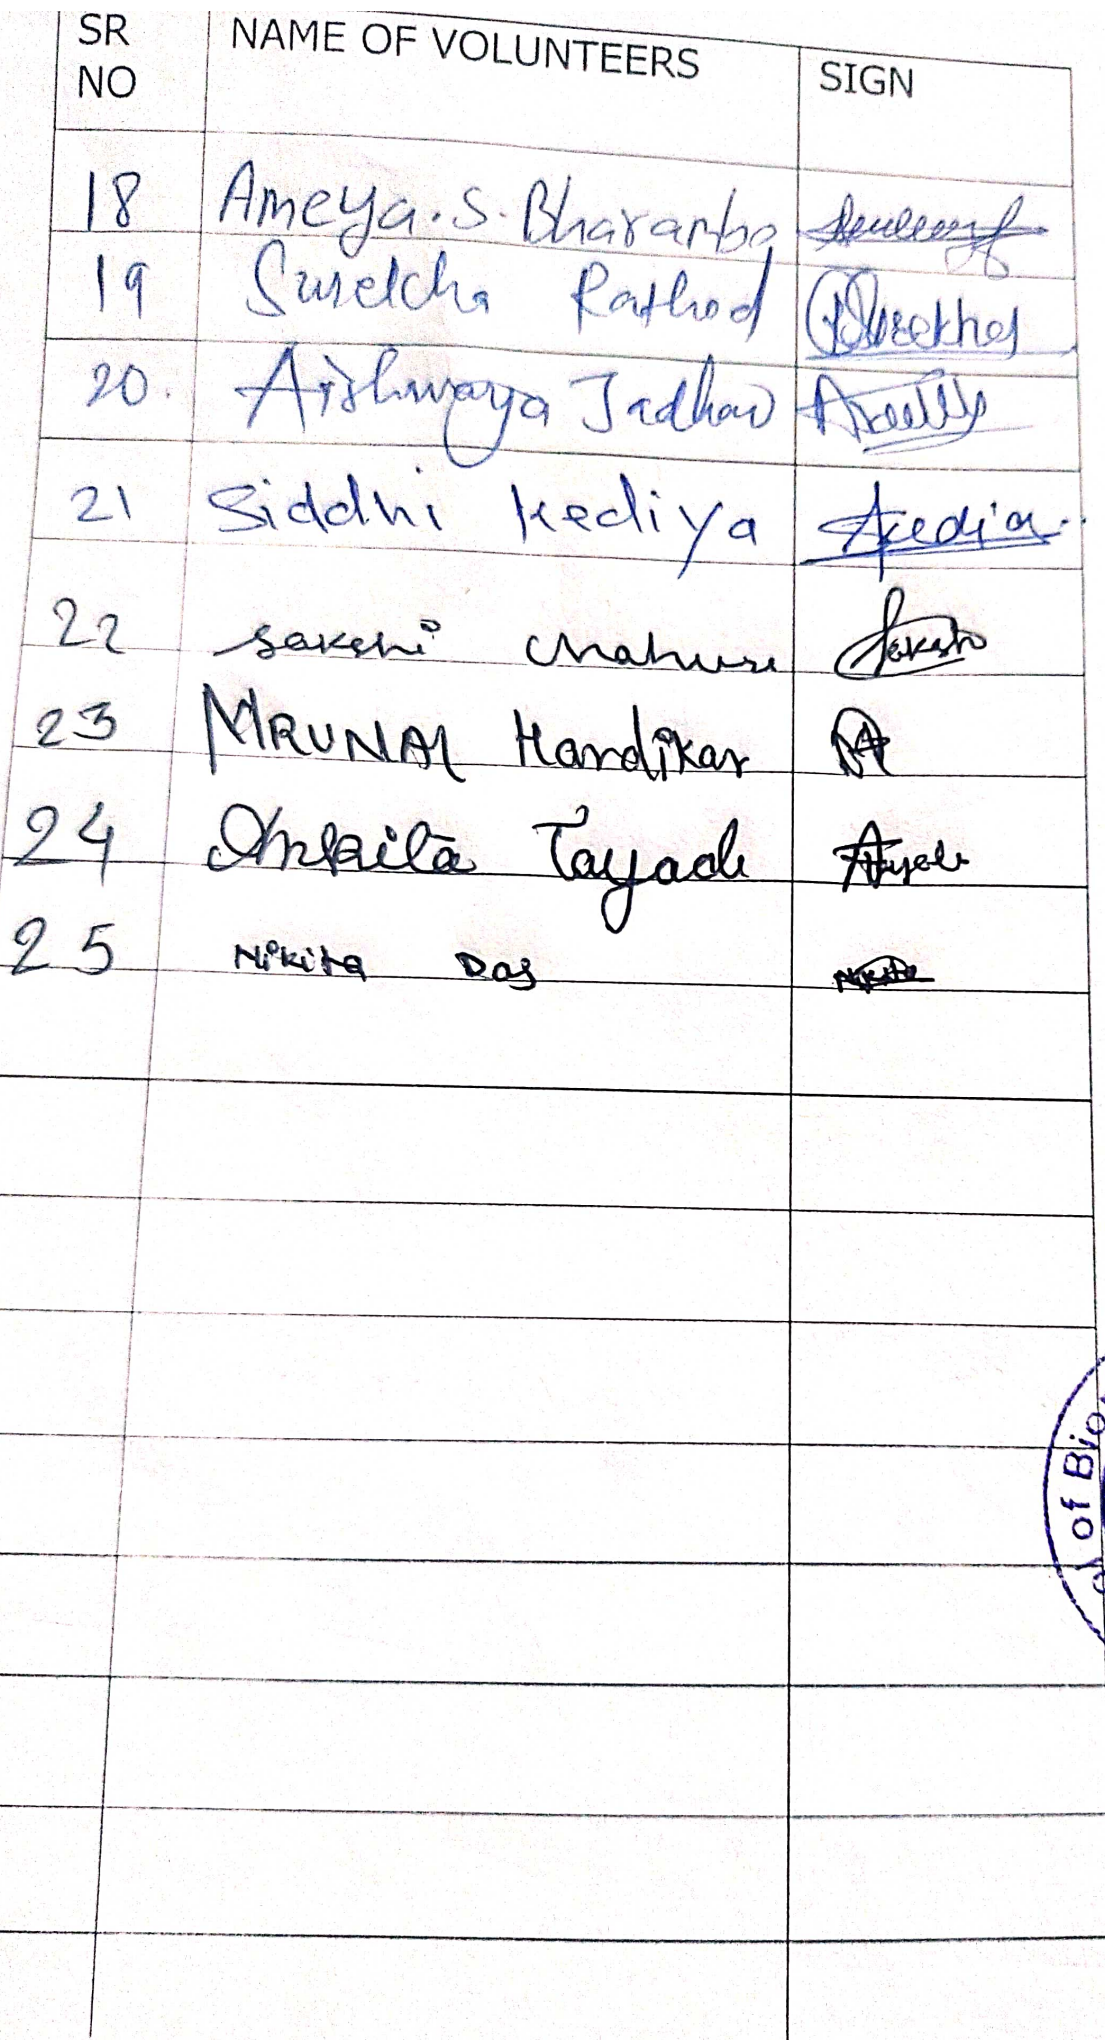 SR NO NAME OF VOLUNTEERS SIGN
18 Ameya.S.Bharambe
19 Surekha Rathod Surekha
20. Aishwarya Jadhav
21 Siddhi Kediya Kedia
22 Sakshi Sakshi
23 MRUNAL Hardikar
24 Ankita Tayade
25 Nikita Das Nikita
of Bio